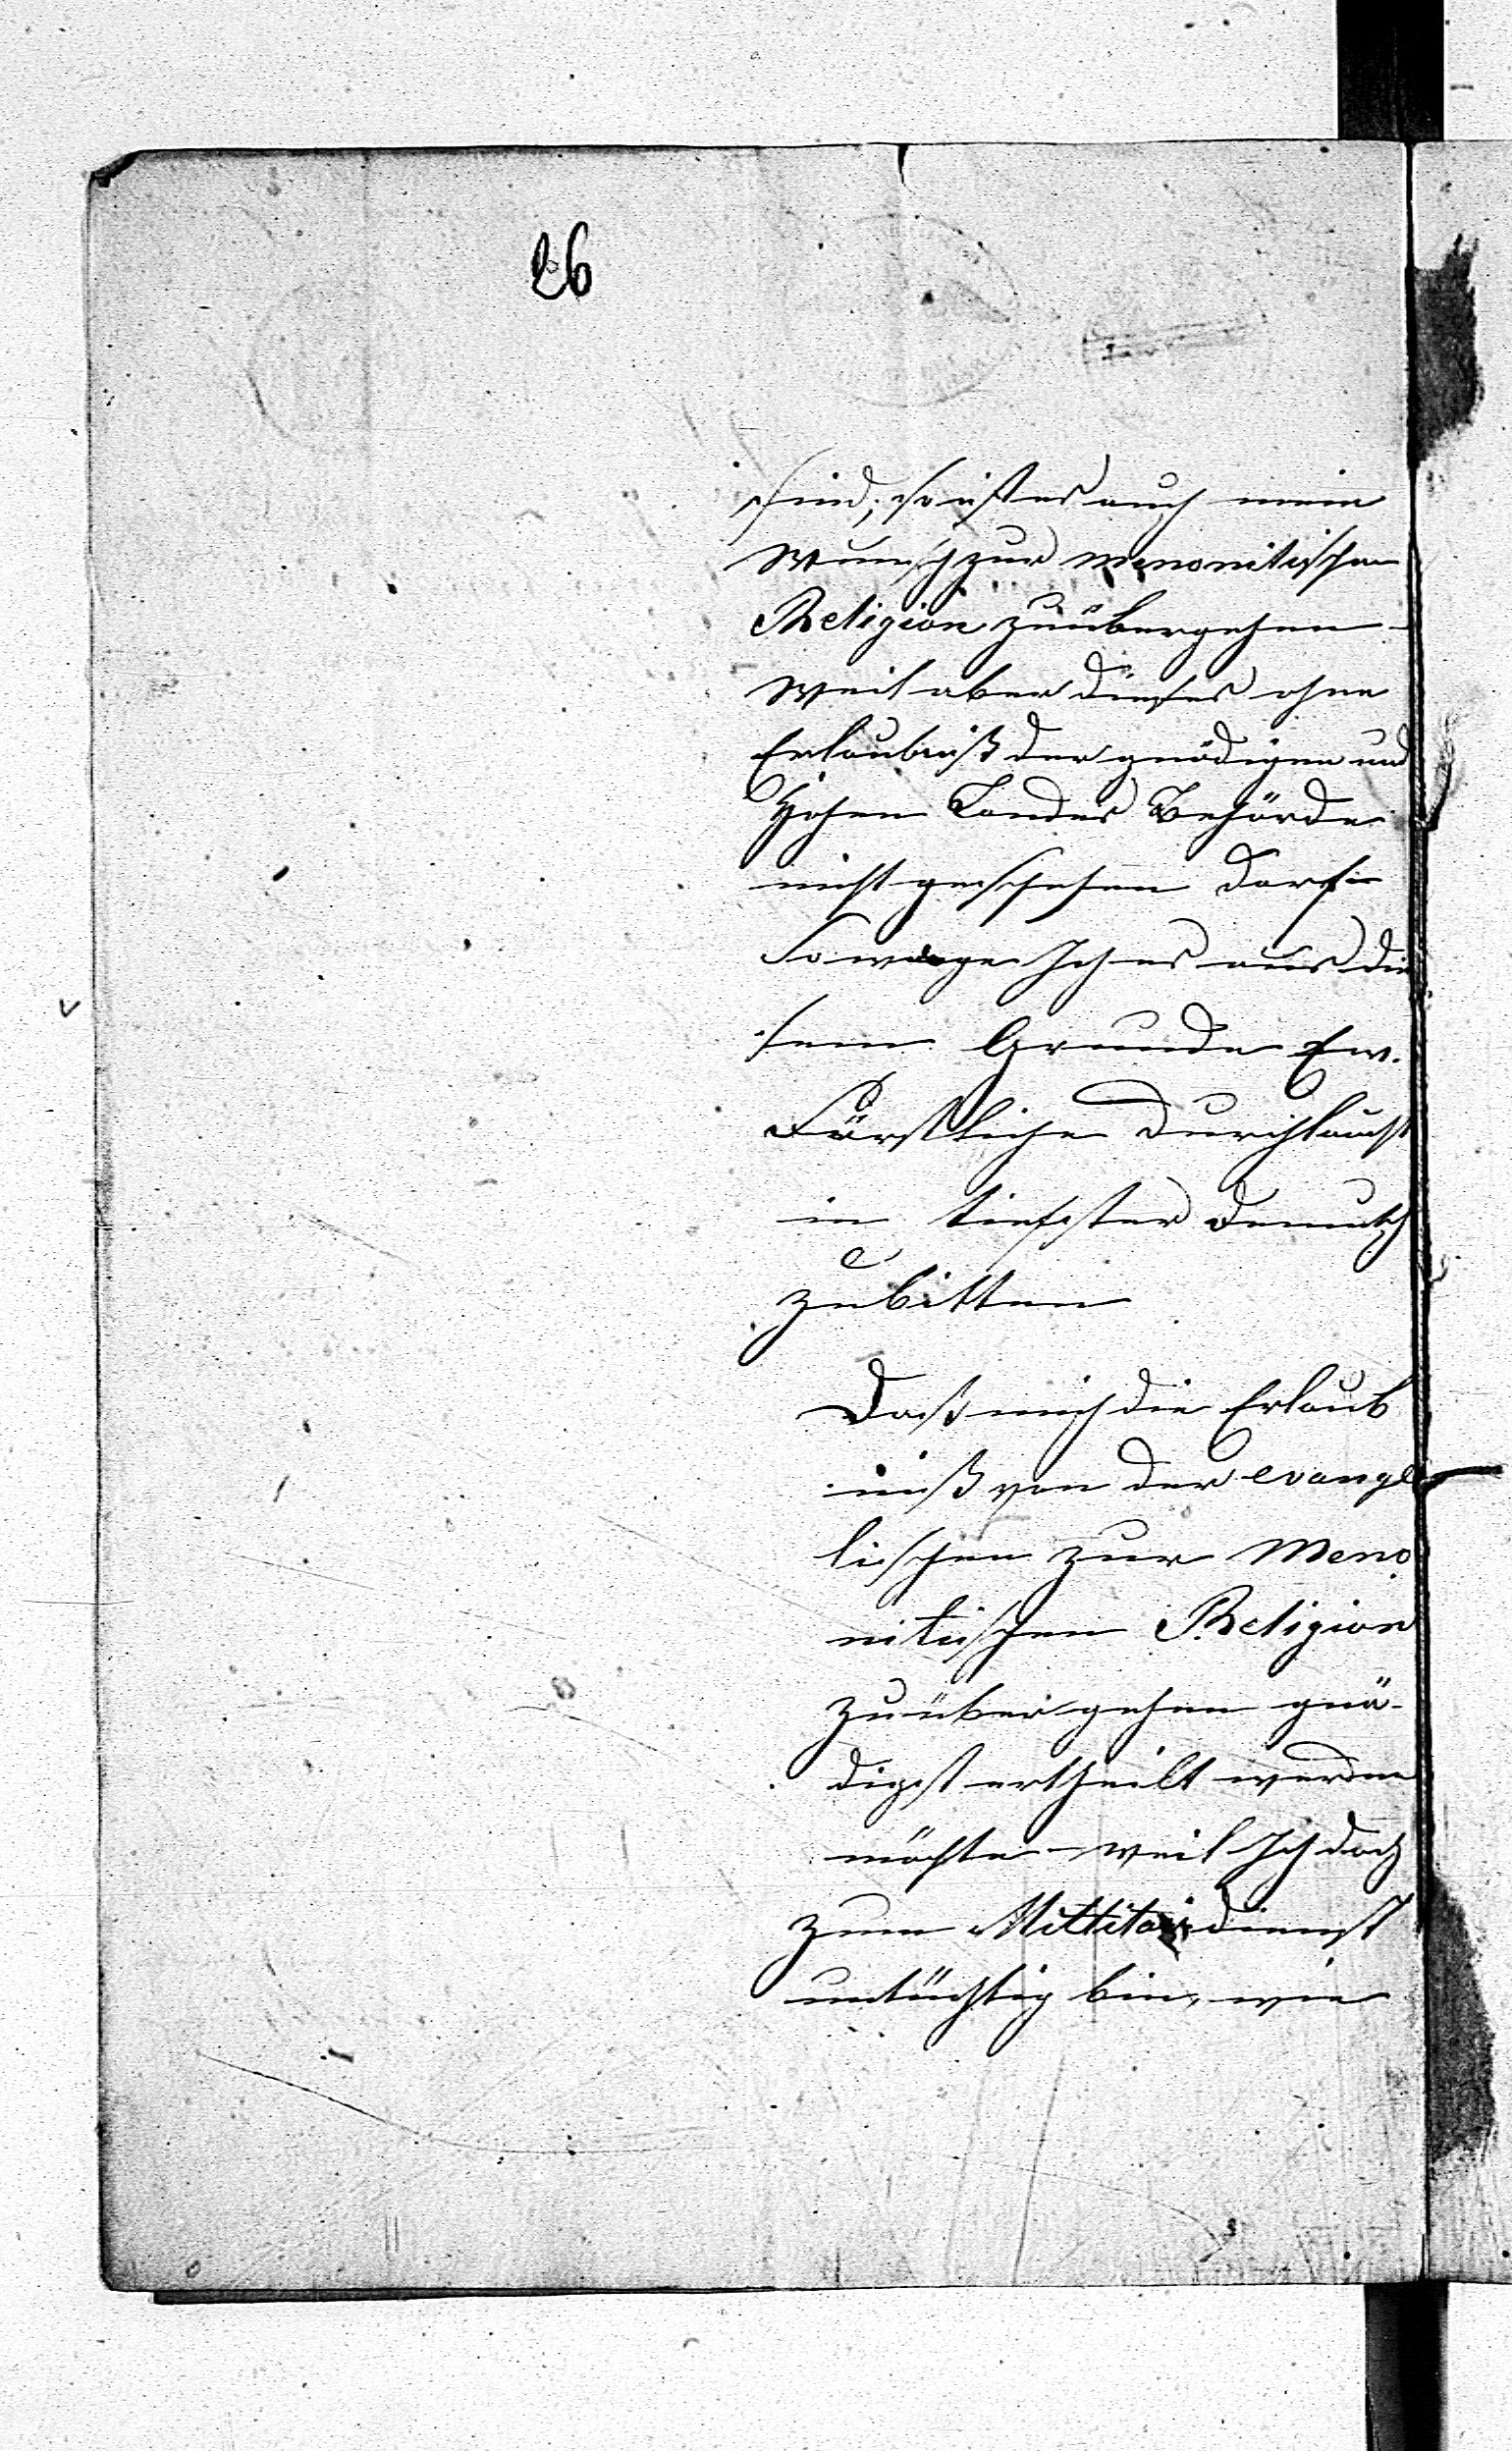 26
sind, so ist es auch mein
Wunsch zur menonitischen
Religion zuübergehen –
Weil aber dieses ohne
Erlaubniß der gnädigen und
Hohen Landes Behörde
nicht geschehen darf –
So wage Ich es aus die
sem Grunde Ew.
Fürstliche Durchlaucht
in tiefster Demuth
zubitten
Daß mich die Erlaub
niß von der evange
lischen zur Meno
nitischen Religion
zuübergehen gnä-
digst ertheilt werden
möchte – weil Ich doch
zum Militairdienst
untüchtig bin, wie